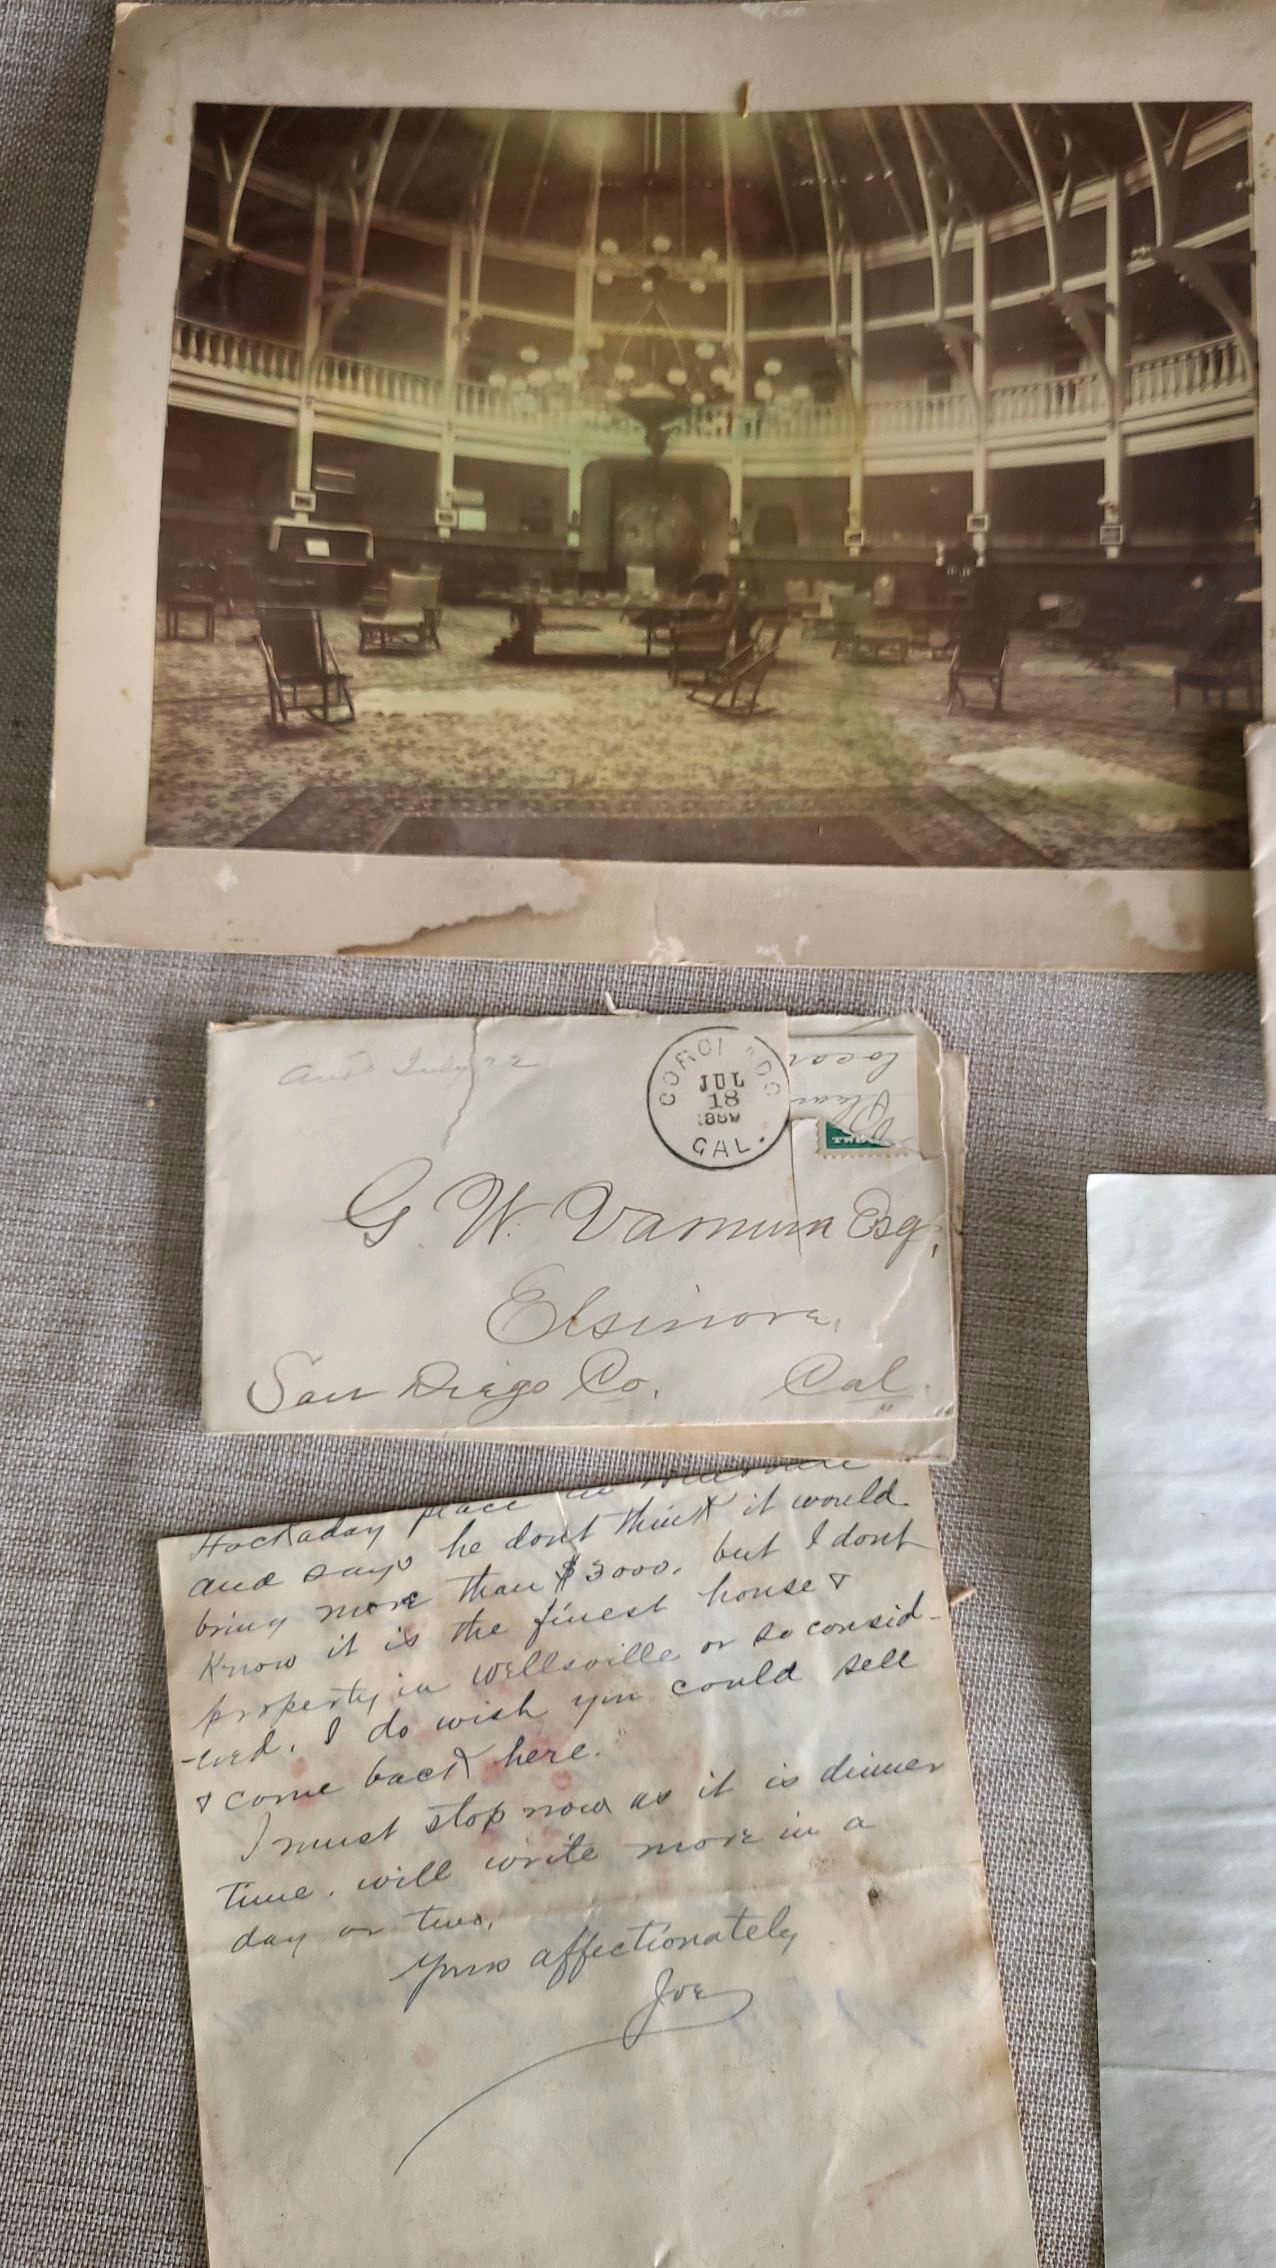 Ans'd July 22
CORONADO
JUL
18
1889
CAL.
TWO
G. W. Varnum Esq,
Elsinore,
San Diego Co. Cal.
Hockaday place in
and says he dont think it would
bring more than $3000, but I dont
Know it is the finest house &
property in wellsville or so consid-
-ered. I do wish you could sell
& come back here.
I must stop now as it is dinner
time. will write more in a
day or two,
Yours affectionately
Joe